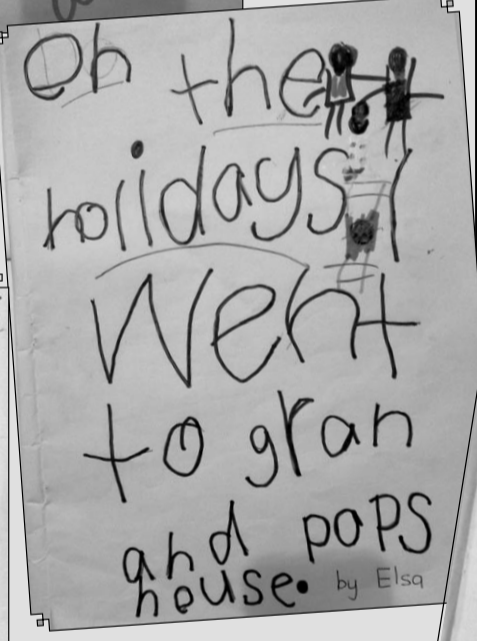 on the
holidays I
went
to gran
and pops
house.
by Elsa